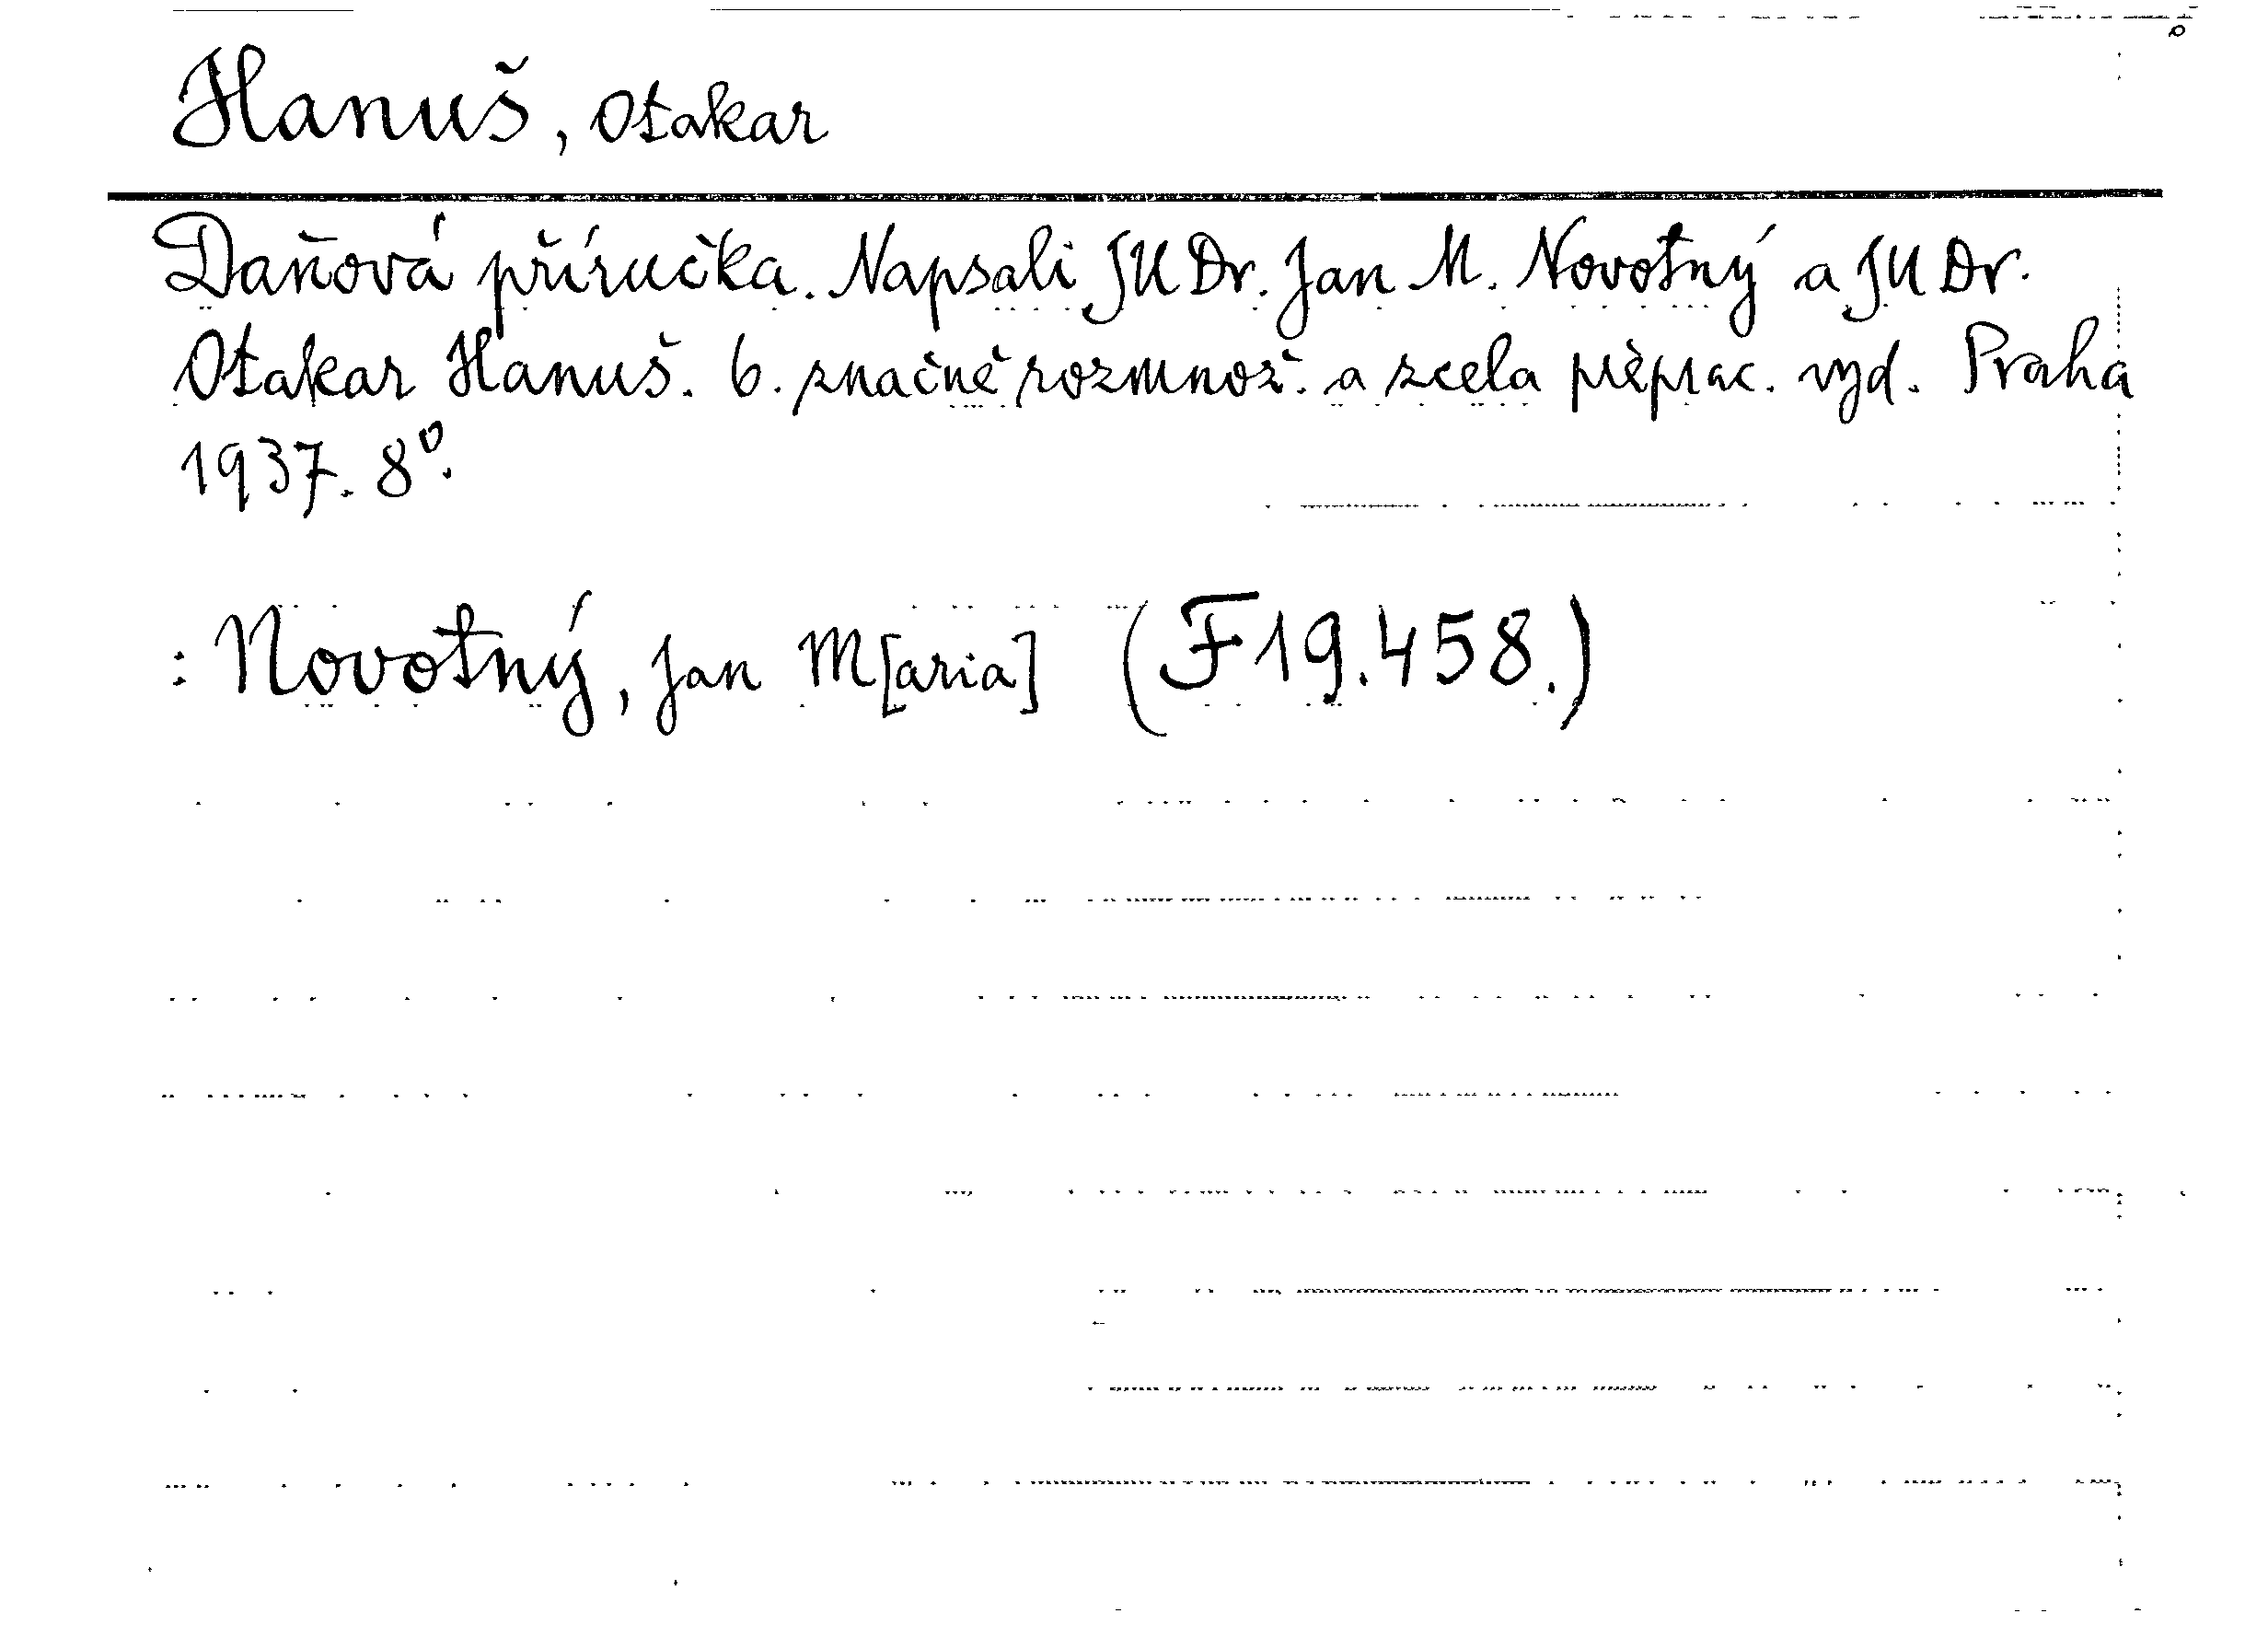 Hanuš, Otakar
Daňová příručka. Napsali JUDr. Jan M. Novotný a JUDr.
Otakar Hanuš. 6. značně rozmnož. a zcela přeprac. vyd. Praha
1937. 8°.
: Novotný, Jan M[aria] (F19.458.)